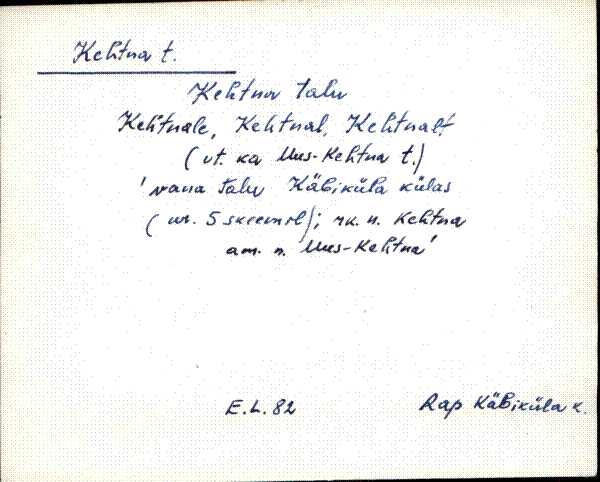 Kehtna t.
Kehtna talu
Kehtnale, Kehtnal, Kehtnalt
(vt. ka Uus-Kehtna t.)
'vana talu Käbiküla külas
(nr. 5 skeemil); rk. n. Kehtna
am. n. Uus-Kehtna'
E.L. 82
Rap Käbiküla k.